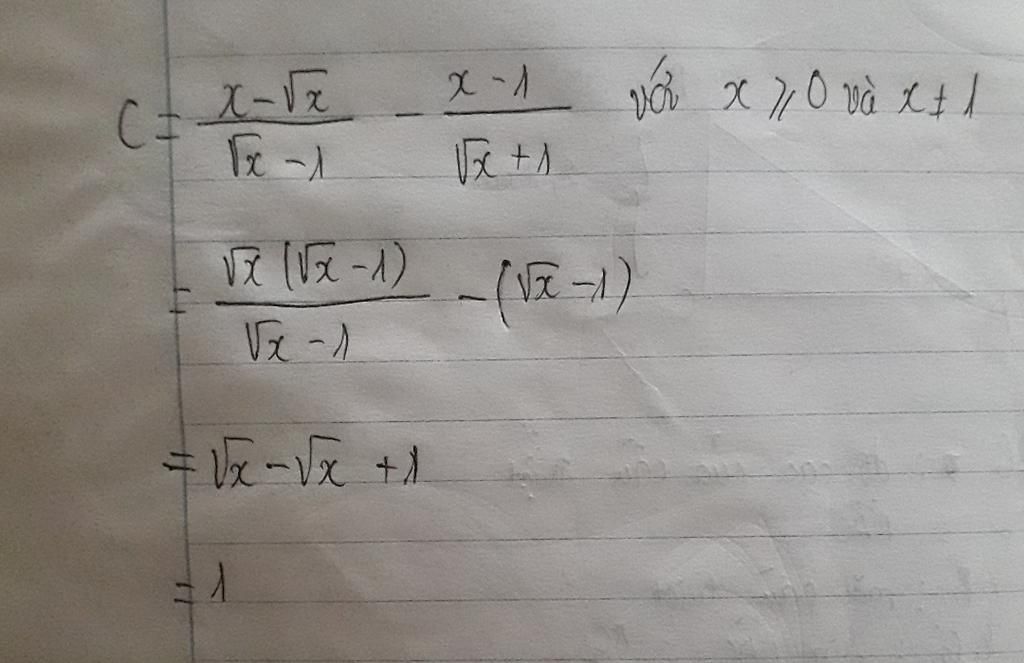 C = \frac{x-\sqrt{x}}{\sqrt{x}-1} - \frac{x-1}{\sqrt{x}+1} với x ⩾ 0 và x ≠ 1
= \frac{\sqrt{x}(\sqrt{x}-1)}{\sqrt{x}-1} - (\sqrt{x}-1)
= \sqrt{x} - \sqrt{x} + 1
= 1